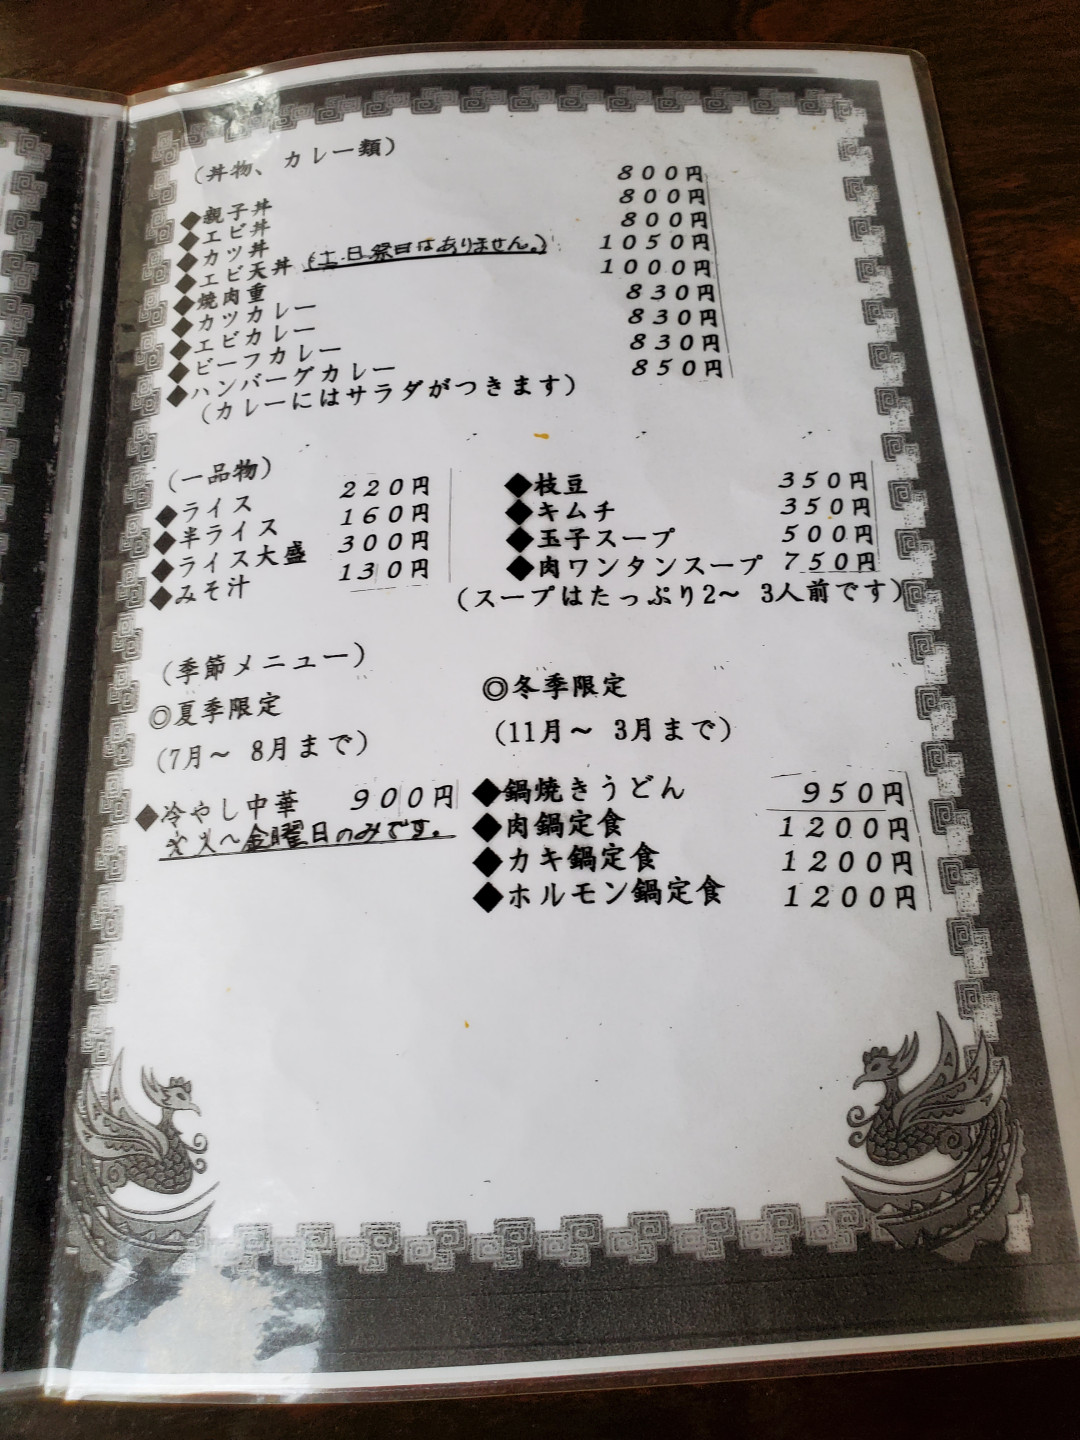 (丼物、カレー類)
◆親子丼 800円
◆エビ丼 800円
◆カツ丼 800円
◆エビ天丼 (土・日祭日はありません。) 1050円
◆焼肉重 1000円
◆カツカレー 830円
◆エビカレー 830円
◆ビーフカレー 830円
◆ハンバーグカレー 850円
(カレーにはサラダがつきます)
(一品物)
◆ライス 220円
◆半ライス 160円
◆ライス大盛 300円
◆みそ汁 130円
◆枝豆 350円
◆キムチ 350円
◆玉子スープ 500円
◆肉ワンタンスープ 750円
(スープはたっぷり2〜 3人前です)
(季節メニュー)
◎夏季限定
(7月〜 8月まで)
◆冷やし中華 900円
火〜金曜日のみです。
◎冬季限定
(11月〜 3月まで)
◆鍋焼きうどん 950円
◆肉鍋定食 1200円
◆カキ鍋定食 1200円
◆ホルモン鍋定食 1200円